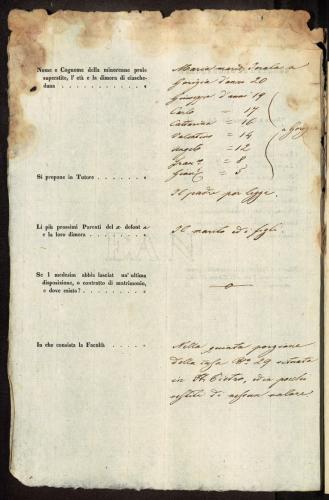 Nome e Cognome della minorenne prole
superstite, l' età e la dimora di ciasche-
duna
Maria marit. Donata a
Gorizia d'anni 20
Giuseppe d'anni 19
Carlo = 17
Catterina = 16
Valentino = 14
Angelo = 12
Fran.º = 8
Giov. = 5
a Gorizia
Si propone in Tutore
Il padre per legge.
Li più prossimi Parenti del defont a
e la loro dimora
Il marito ed i figli
Se l medesim abbia lasciat un' ultima
disposizione, o contratto di matrimonio,
e dove esista?
In che consista la Facoltà
Nella quinta porzione
della casa Nº 29 situata
in St. Pietro, ed in pochi
vestiti di nessun valore